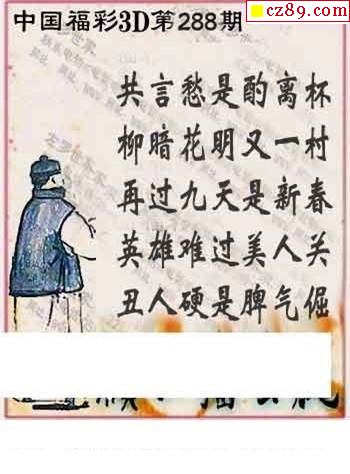 cz89.com
中国福彩3D第288期
共言愁是酌离杯
柳暗花明又一村
再过九天是新春
英雄难过美人关
丑人硬是脾气倔